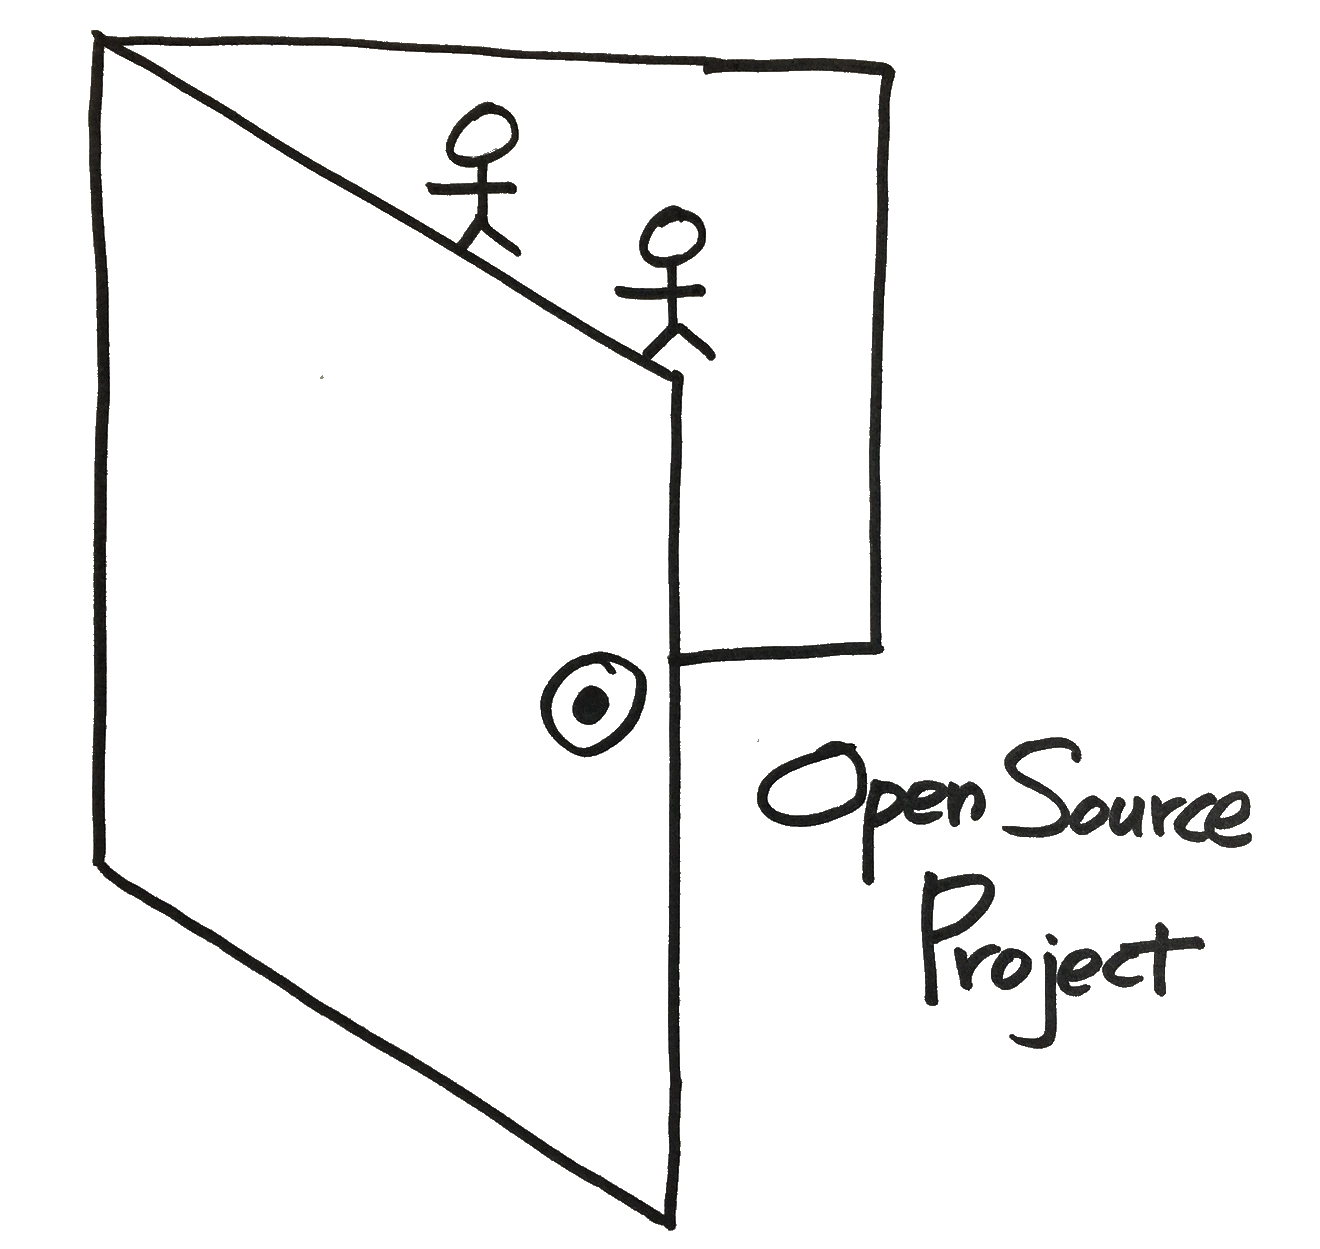 Open Source
Project